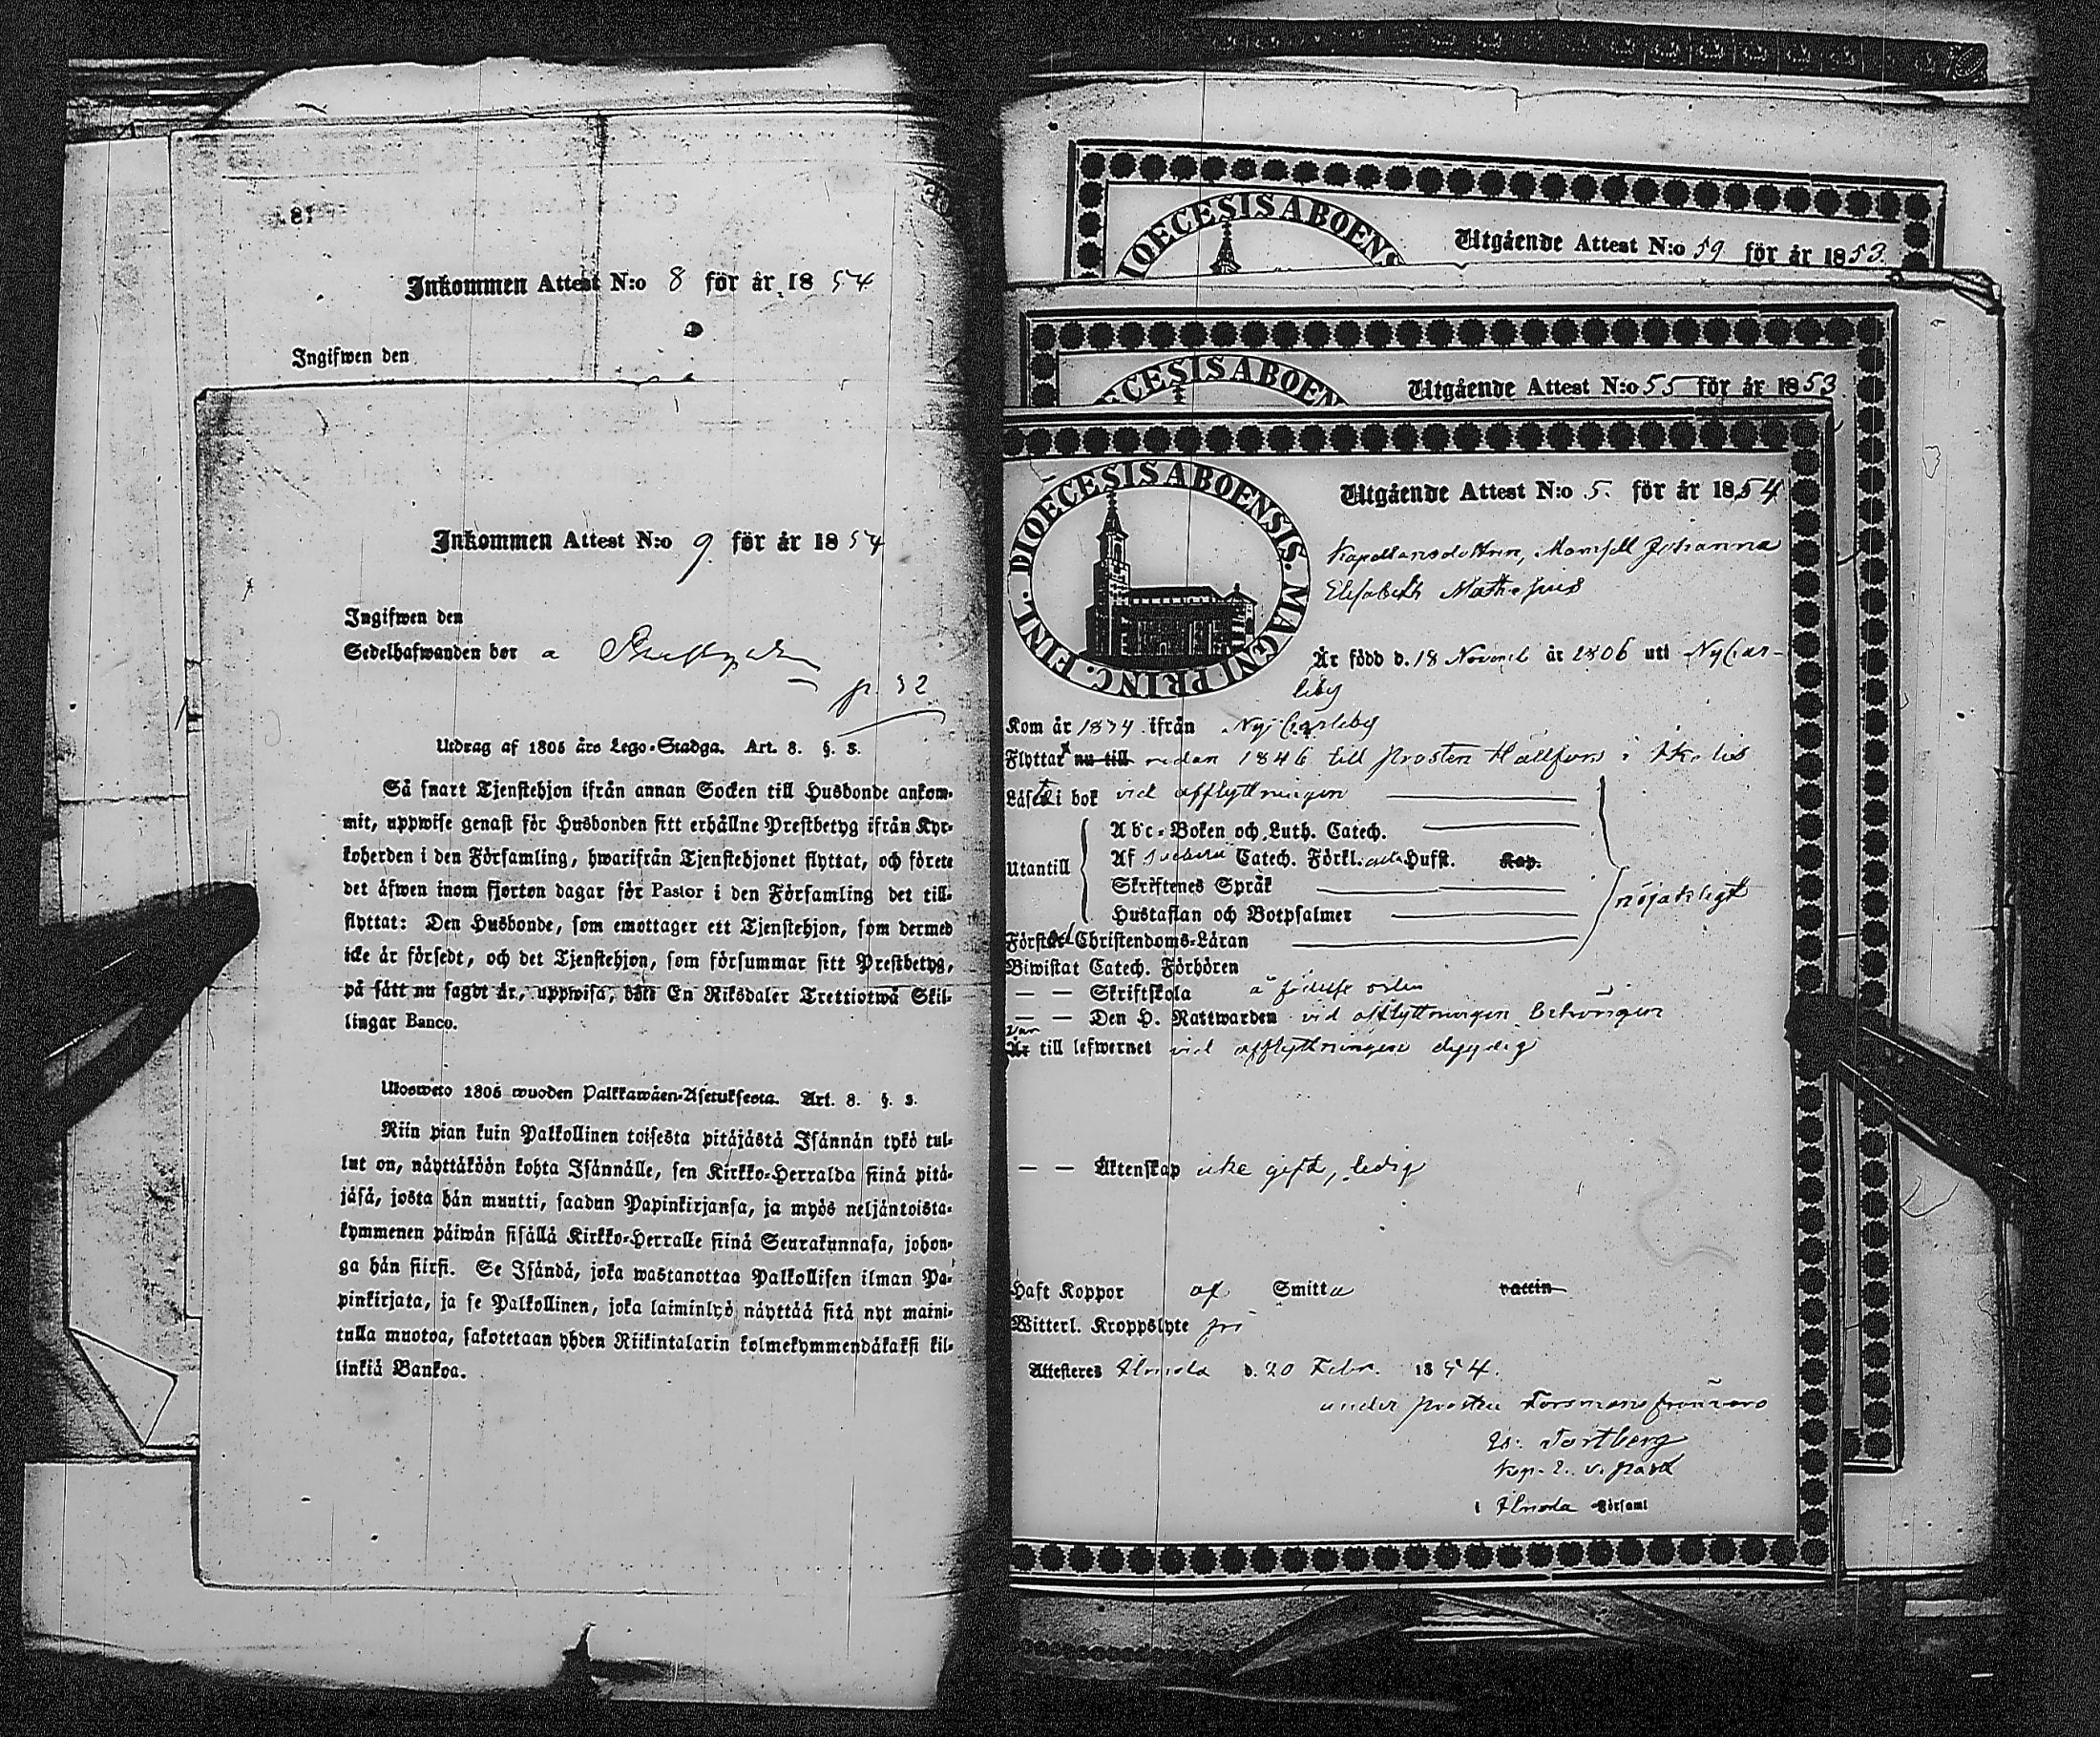 Inkommen Attest N:o 8 för år 1854
Ingifwen den
Inkommen Attest N:o 9. för år 1854
Ingifwen den
Sedelhafwanden bor a
p. 32
Utdrag af 1805 års Lego-Stadga. Art. 8. §. 3.
Så snart Tjenstehjon ifrån annan Socken till Husbonde ankom-
mit, uppwise genast för Husbonden sitt erhållne Prestbetyg ifrån Kyr-
koherden i den Församling, hwarifrån Tjenstehjonet flyttat, och förete
det äfwen inom fjorton dagar för Pastor i den Församling det till-
flyttat: Den Husbonde, som emottager ett Tjenstehjon, som dermed
icke är försedt, och det Tjenstehjon, som försummar sitt Prestbetyg,
på sätt nu sagdt är, uppwisa, böte En Riksdaler Trettiotwå Skil-
lingar Banco.
Ulosweto 1805 wuoden Palkkawäen-Asetuksesta. Art. 8. §. 3.
Niin pian kuin Palkollinen toisesta pitäjästä Isännän tykö tul-
lut on, näyttäköön kohta Isännälle, sen Kirkko-Herralda siinä pitä-
jäsä, josta hän muutti, saadun Papinkirjansa, ja myös neljäntoista-
kymmenen päiwän sisällä Kirkko-Herralle siinä Seurakunnasa, johon-
ga hän siirsi. Se Isändä, joka wastanottaa Palkollisen ilman Pa-
pinkirjata, ja se Palkollinen, joka laiminlyö näyttää sitä nyt maini-
tulla muotoa, sakotetaan yhden Riikintalarin kolmekymmendäkaksi kil-
linkiä Bankoa.
DIOECESIS ABOENS
Utgående Attest N:o 59 för år 1853.
ECESIS ABOEN
Utgående Attest N:o 55 för år 1853
DIOECESIS ABOENSIS. MAGNI PRINC. FINL.
Utgående Attest N:o 5. för år 1854
Kapellansdottren, Mamsell Johanna
Elisabeth
Är född d. 18 Novemb år 1806 uti Nycar-
leby
Kom år 1834 ifrån Ny Carleby
Flyttat nu till redan 1846 till prosten Hällfors i
Läste i bok vid afflyttningen
Utantill
Abc-Boken och Luth. Catech.
Af Catech. Förkl. Hust. Kap.
Skriftenes Språk
Hustaflan och Botpsalmer
nöjaktigt
Förstod Christendoms-Läran
Biwistat Catech. Förhören
— — Skriftskola å födelse orten
— — Den H. Nattwarden vid afflyttningen
var
Är till lefwernet vid afflyttningen dygdig
— — Äktenskap icke gift, ledig
Haft Koppor af Smitta vaccin
Witterl. Kroppslyte fri
Attesteres Ilmola d. 20 Febr. 1854.
under prosten Forsmans frånvaro
Tartberg
i Ilmola Församl